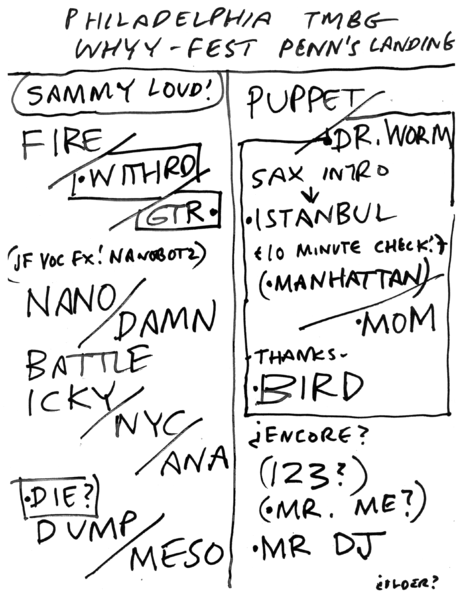 PHILADELPHIA TMBG
WHYY-FEST PENN'S LANDING
SAMMY LOUD!
FIRE
•WITHRD
GTR•
(JF VOC FX! NANOBOTZ)
NANO
DAMN
BATTLE
ICKY
NYC
ANA
•DIE?
DUMP
MESO
PUPPET
•DR. WORM
SAX INTRO
•ISTANBUL
{10 MINUTE CHECK!}
(•MANHATTAN)
•MOM
THANKS-
•BIRD
¿ENCORE?
(123?)
(•MR. ME?)
•MR DJ
¿OLDER?